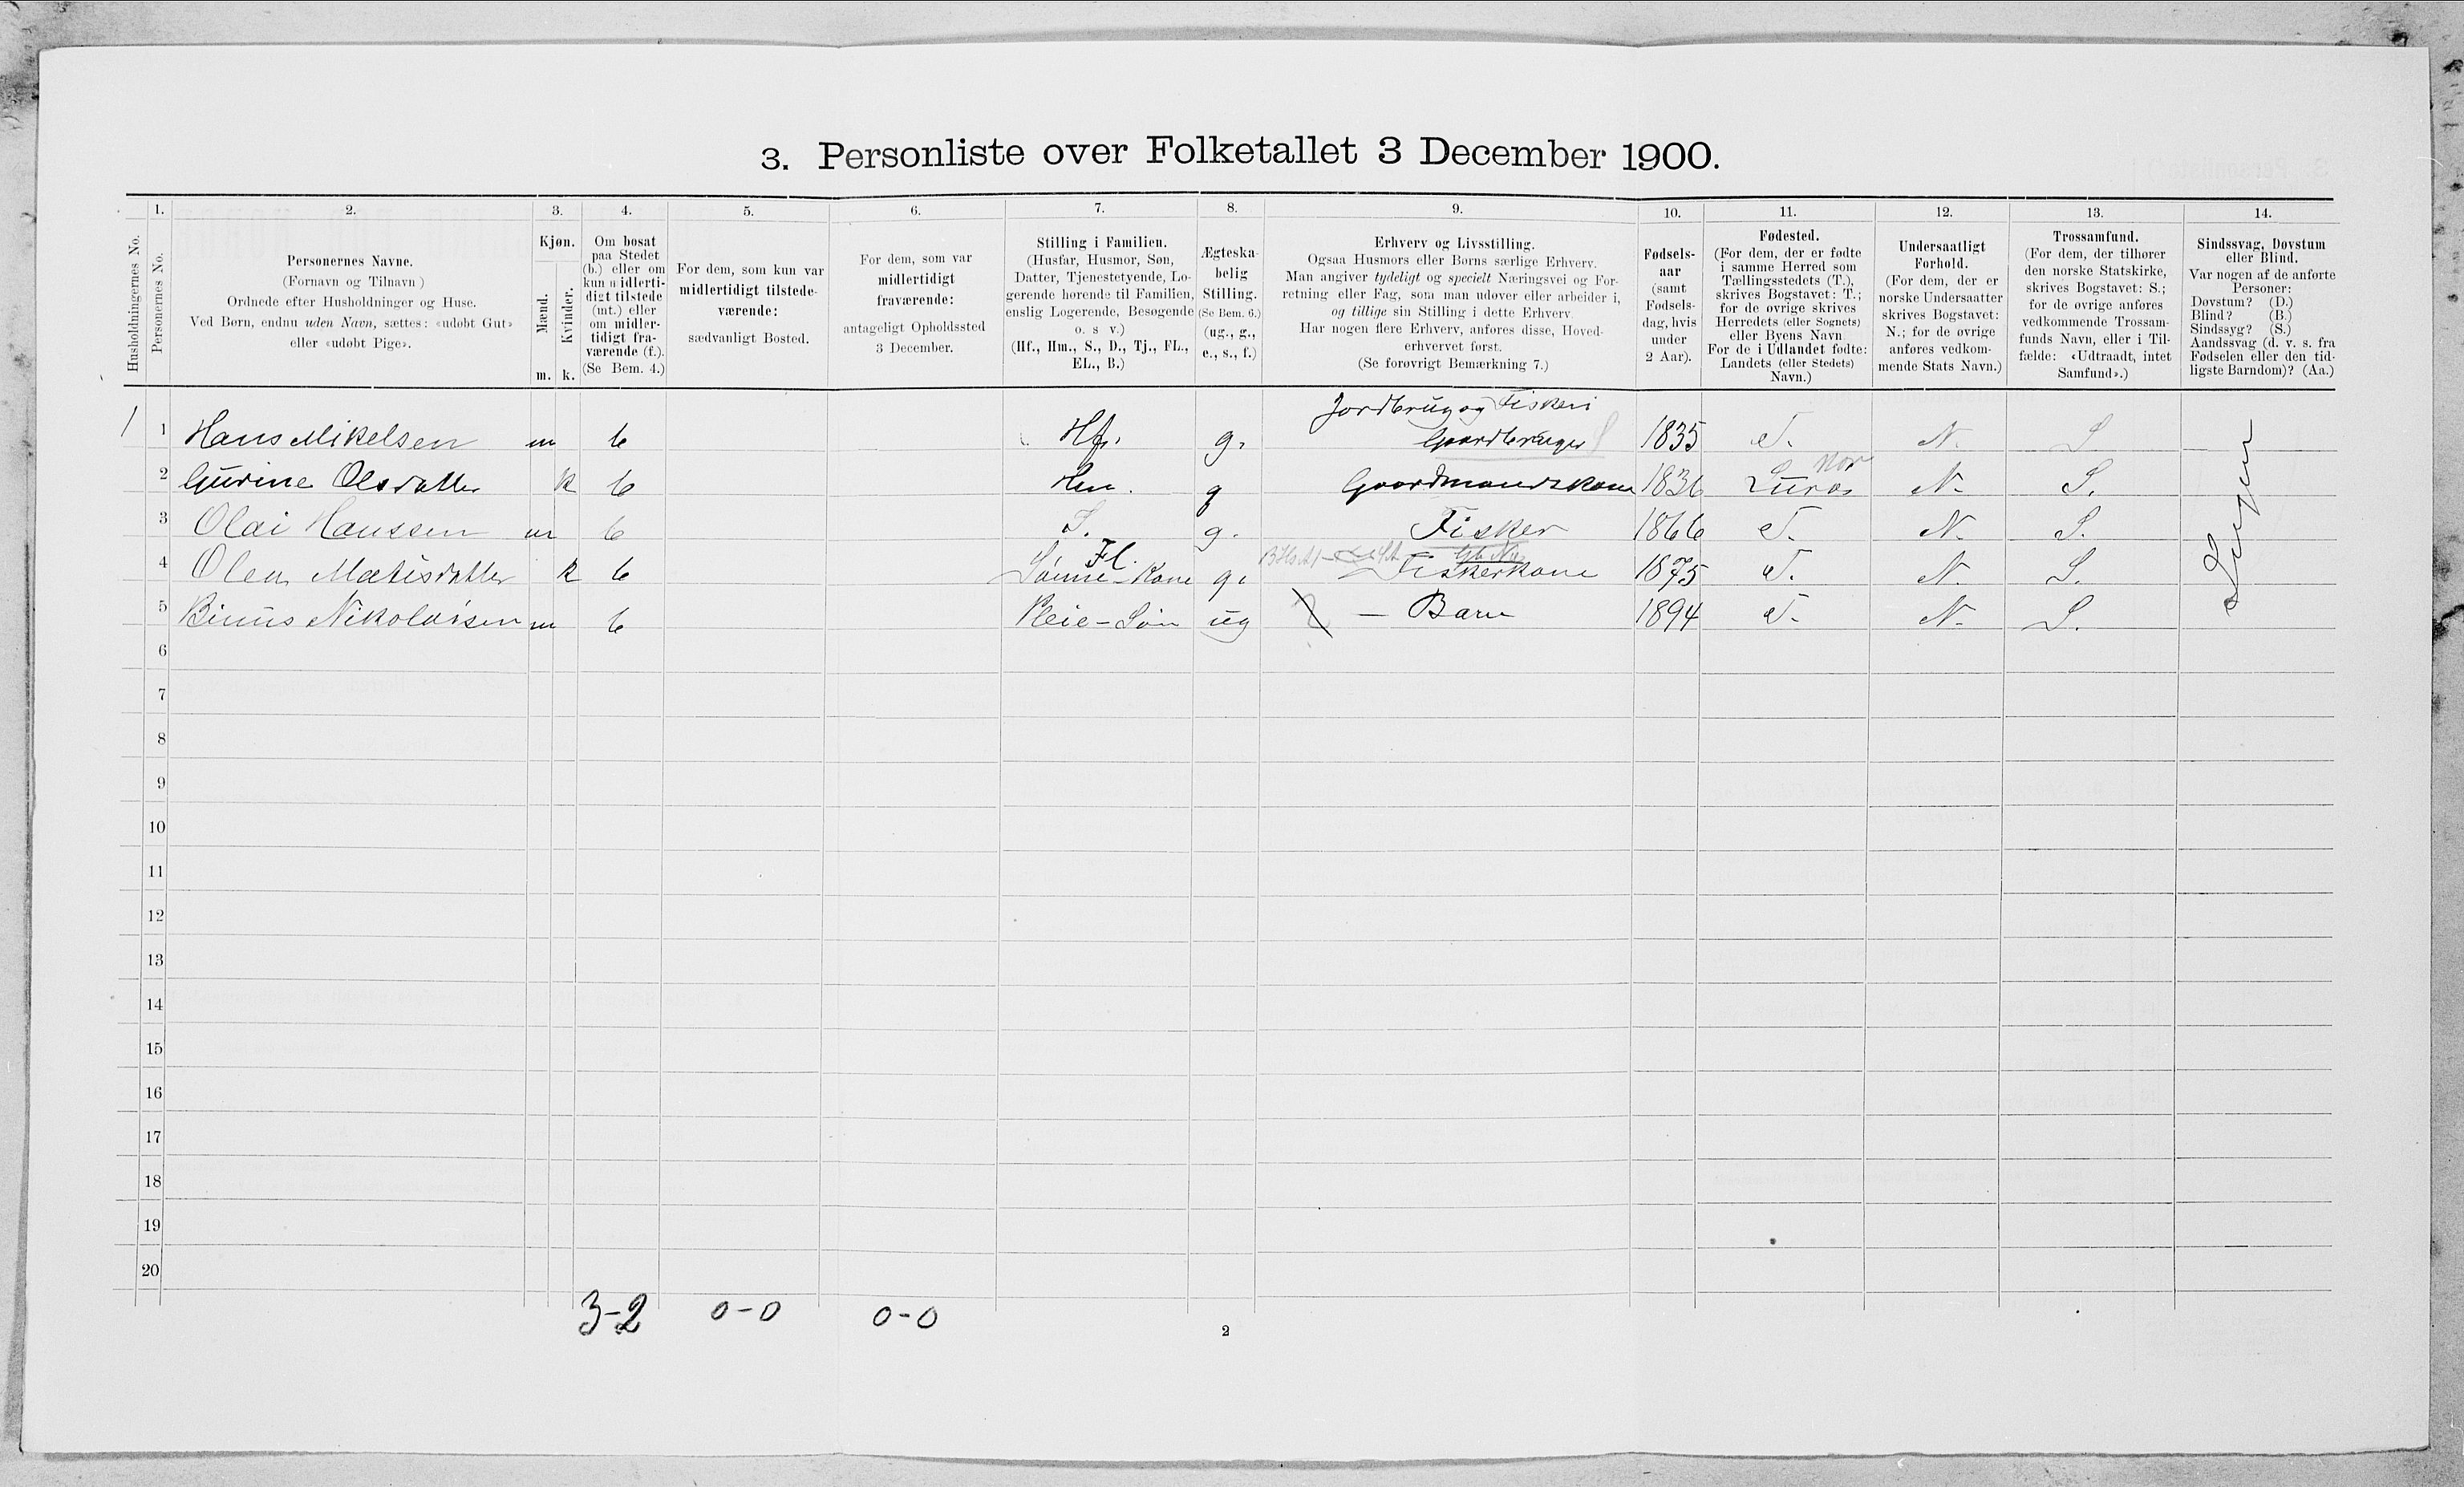 3. Personliste over Folketallet 3 December 1900.
Husholdningernes No.
1.
Personernes No.
2.
Personernes Navne.
(Fornavn og Tilnavn)
Ordnede efter Husholdninger og Huse.
Ved Børn, endnu uden Navn, sættes: «udøbt Gut»
eller «udøbt Pige».
3.
Kjøn.
Mænd.
Kvinder.
m. k.
4.
Om bosat
paa Stedet
(b.) eller om
kun midlerti-
digt tilstede
(mt.) eller
om midler-
tidigt fra-
værende (f.).
(Se Bem. 4.)
5.
For dem, som kun var
midlertidigt tilstede-
værende:
sædvanligt Bosted.
6.
For dem, som var
midlertidigt
fraværende:
antageligt Opholdssted
3 December.
7.
Stilling i Familien.
(Husfar, Husmor, Søn,
Datter, Tjenestetyende, Lo-
gerende hørende til Familien,
enslig Logerende, Besøgende
o. s v.)
(Hf., Hm., S., D., Tj., FL.,
EL., B.)
8.
Ægteska-
belig
Stilling.
(Se Bem. 6.)
(ug., g.,
e., s., f.)
9.
Erhverv og Livsstilling.
Ogsaa Husmors eller Børns særlige Erhverv.
Man angiver tydeligt og specielt Næringsvei og For-
retning eller Fag, som man udøver eller arbeider i,
og tillige sin Stilling i dette Erhverv
Har nogen flere Erhverv, anføres disse, Hoved-
erhvervet først.
(Se forøvrigt Bemærkning 7.)
10.
Fødsels-
aar
(samt
Fødsels-
dag, hvis
under
2 Aar).
11.
Fødested.
(For dem, der er fødte
i samme Herred som
Tællingsstedets (T.),
skrives Bogstavet: T.;
for de øvrige skrives
Herredets (eller Sognets)
eller Byens Navn
For de i Udlandet fødte:
Landets (eller Stedets)
Navn.)
12.
Undersaatligt
Forhold.
(For dem, der er
norske Undersaatter
skrives Bogstavet:
N.; for de øvrige
anføres vedkom-
mende Stats Navn.)
13.
Trossamfund.
(For dem, der tilhører
den norske Statskirke,
skrives Bogstavet: S.;
for de øvrige anføres
vedkommende Trossam-
funds Navn, eller i Til-
fælde: «Udtraadt, intet
Samfund».)
14.
Sindssvag, Døvstum
eller Blind.
Var nogen af de anførte
Personer:
Døvstum? (D.)
Blind? (B.)
Sindssyg? (S.)
Aandssvag (d. v. s. fra
Fødselen eller den tid-
ligste Barndom)? (Aa.)
Jordbrug og Fiskeri
1 1 Hans Mikelsen m b Hf. g. Gaardbruger 1835 T. N. S.
Nor
2 Gurine Olsdatter k b Hm. g Gaardmandskone 1836 Lurøs N. S.
3 Olai Hanssen m b S. g. Fisker 1866 T. N. S.
Fl.
4 Olea Matisdatter k b Sønne-Kone g. Fiskerkone 1875 T. N. S.
5 Binus Nikolaisen m b Pleie-Søn ug — Barn 1894 T. N. S.
Ingen
6
7
8
9
10
11
12
13
14
15
16
17
18
19
20
3-2 0-0 0-0
2